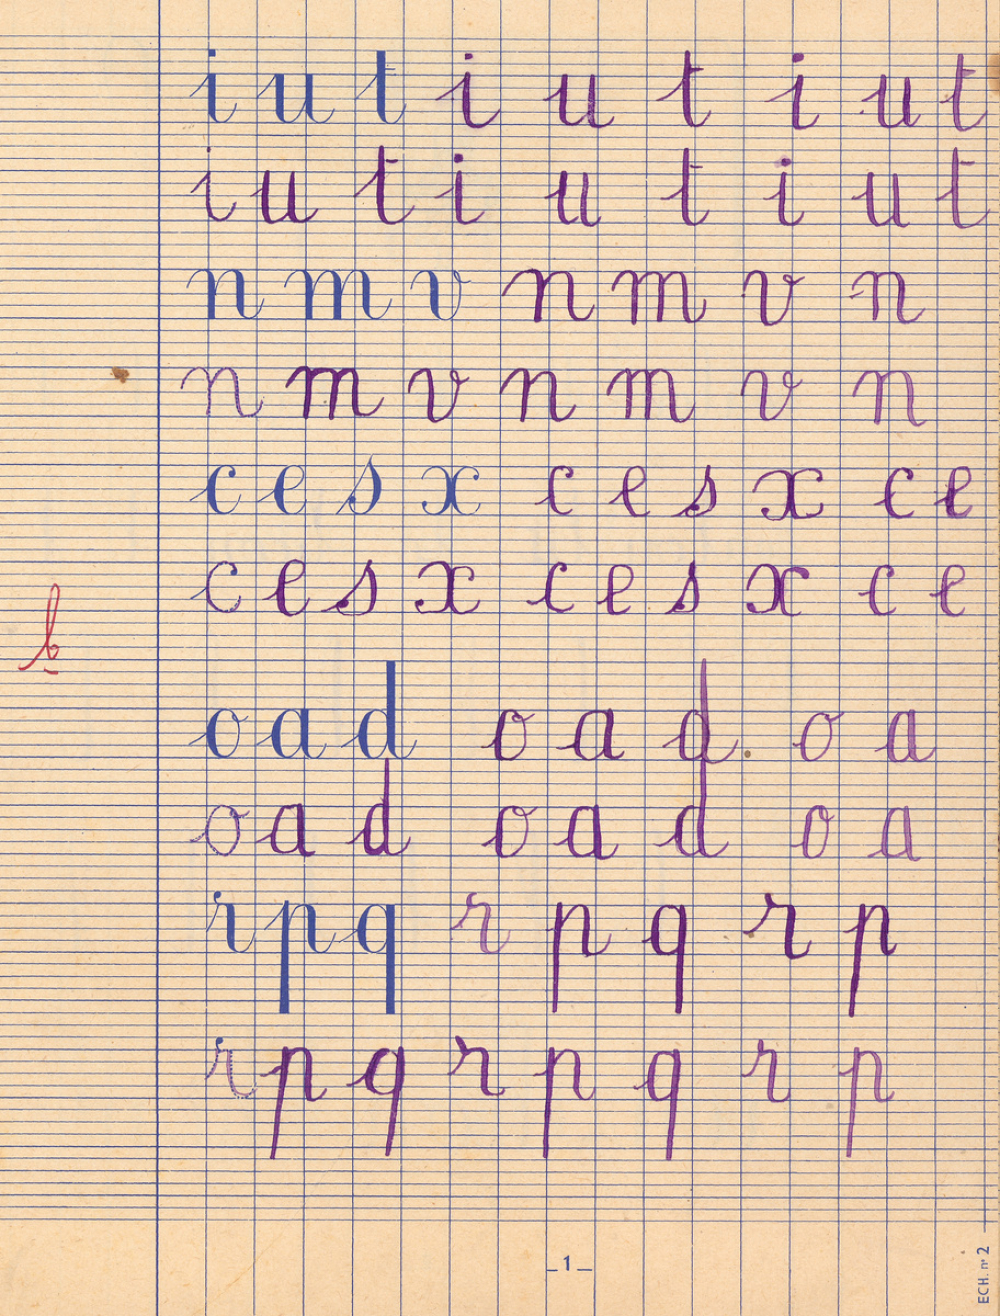 i u t i u t i u t
i u t i u t i u t
n m v n m v n
n m v n m v n
c e s x c e s x c e
c e s x c e s x c e
b
o a d o a d o a
o a d o a d o a
r p q r p q r p
r p q r p q r p
_1_
ECH. n° 2